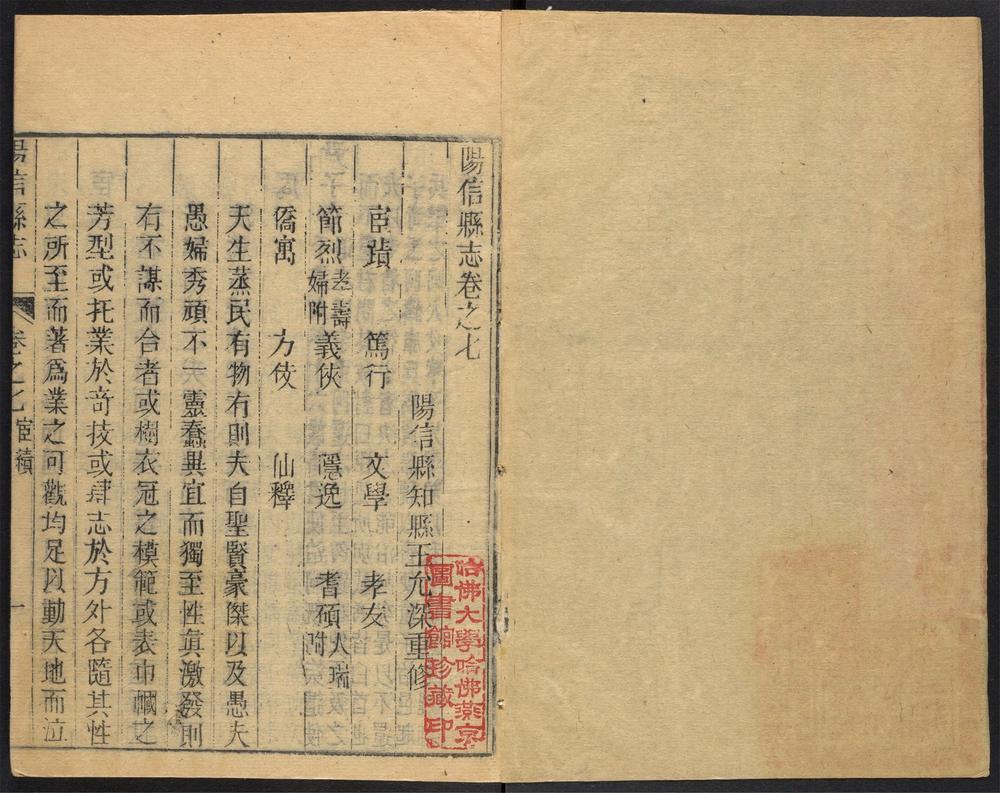 陽信縣志卷之七
陽信縣知縣王允深重修
宦蹟 篤行 文學 孝友
節烈老壽婦附 義俠 隱逸 耆碩人瑞附
僑寓 方伎 仙釋
天生蒸民有物有則夫自聖賢豪傑以及愚夫
愚婦秀頑不一靈蠢異宜而獨至性眞激發則
有不謀而合者或樹衣冠之模範或表巾幗之
芳型或托業於奇技或肆志於方外各隨其性
之所至而著爲業之可觀均足以動天地而泣
陽信縣志 卷之七 宦績 一
哈佛大學哈佛燕京
圖書館珍藏印